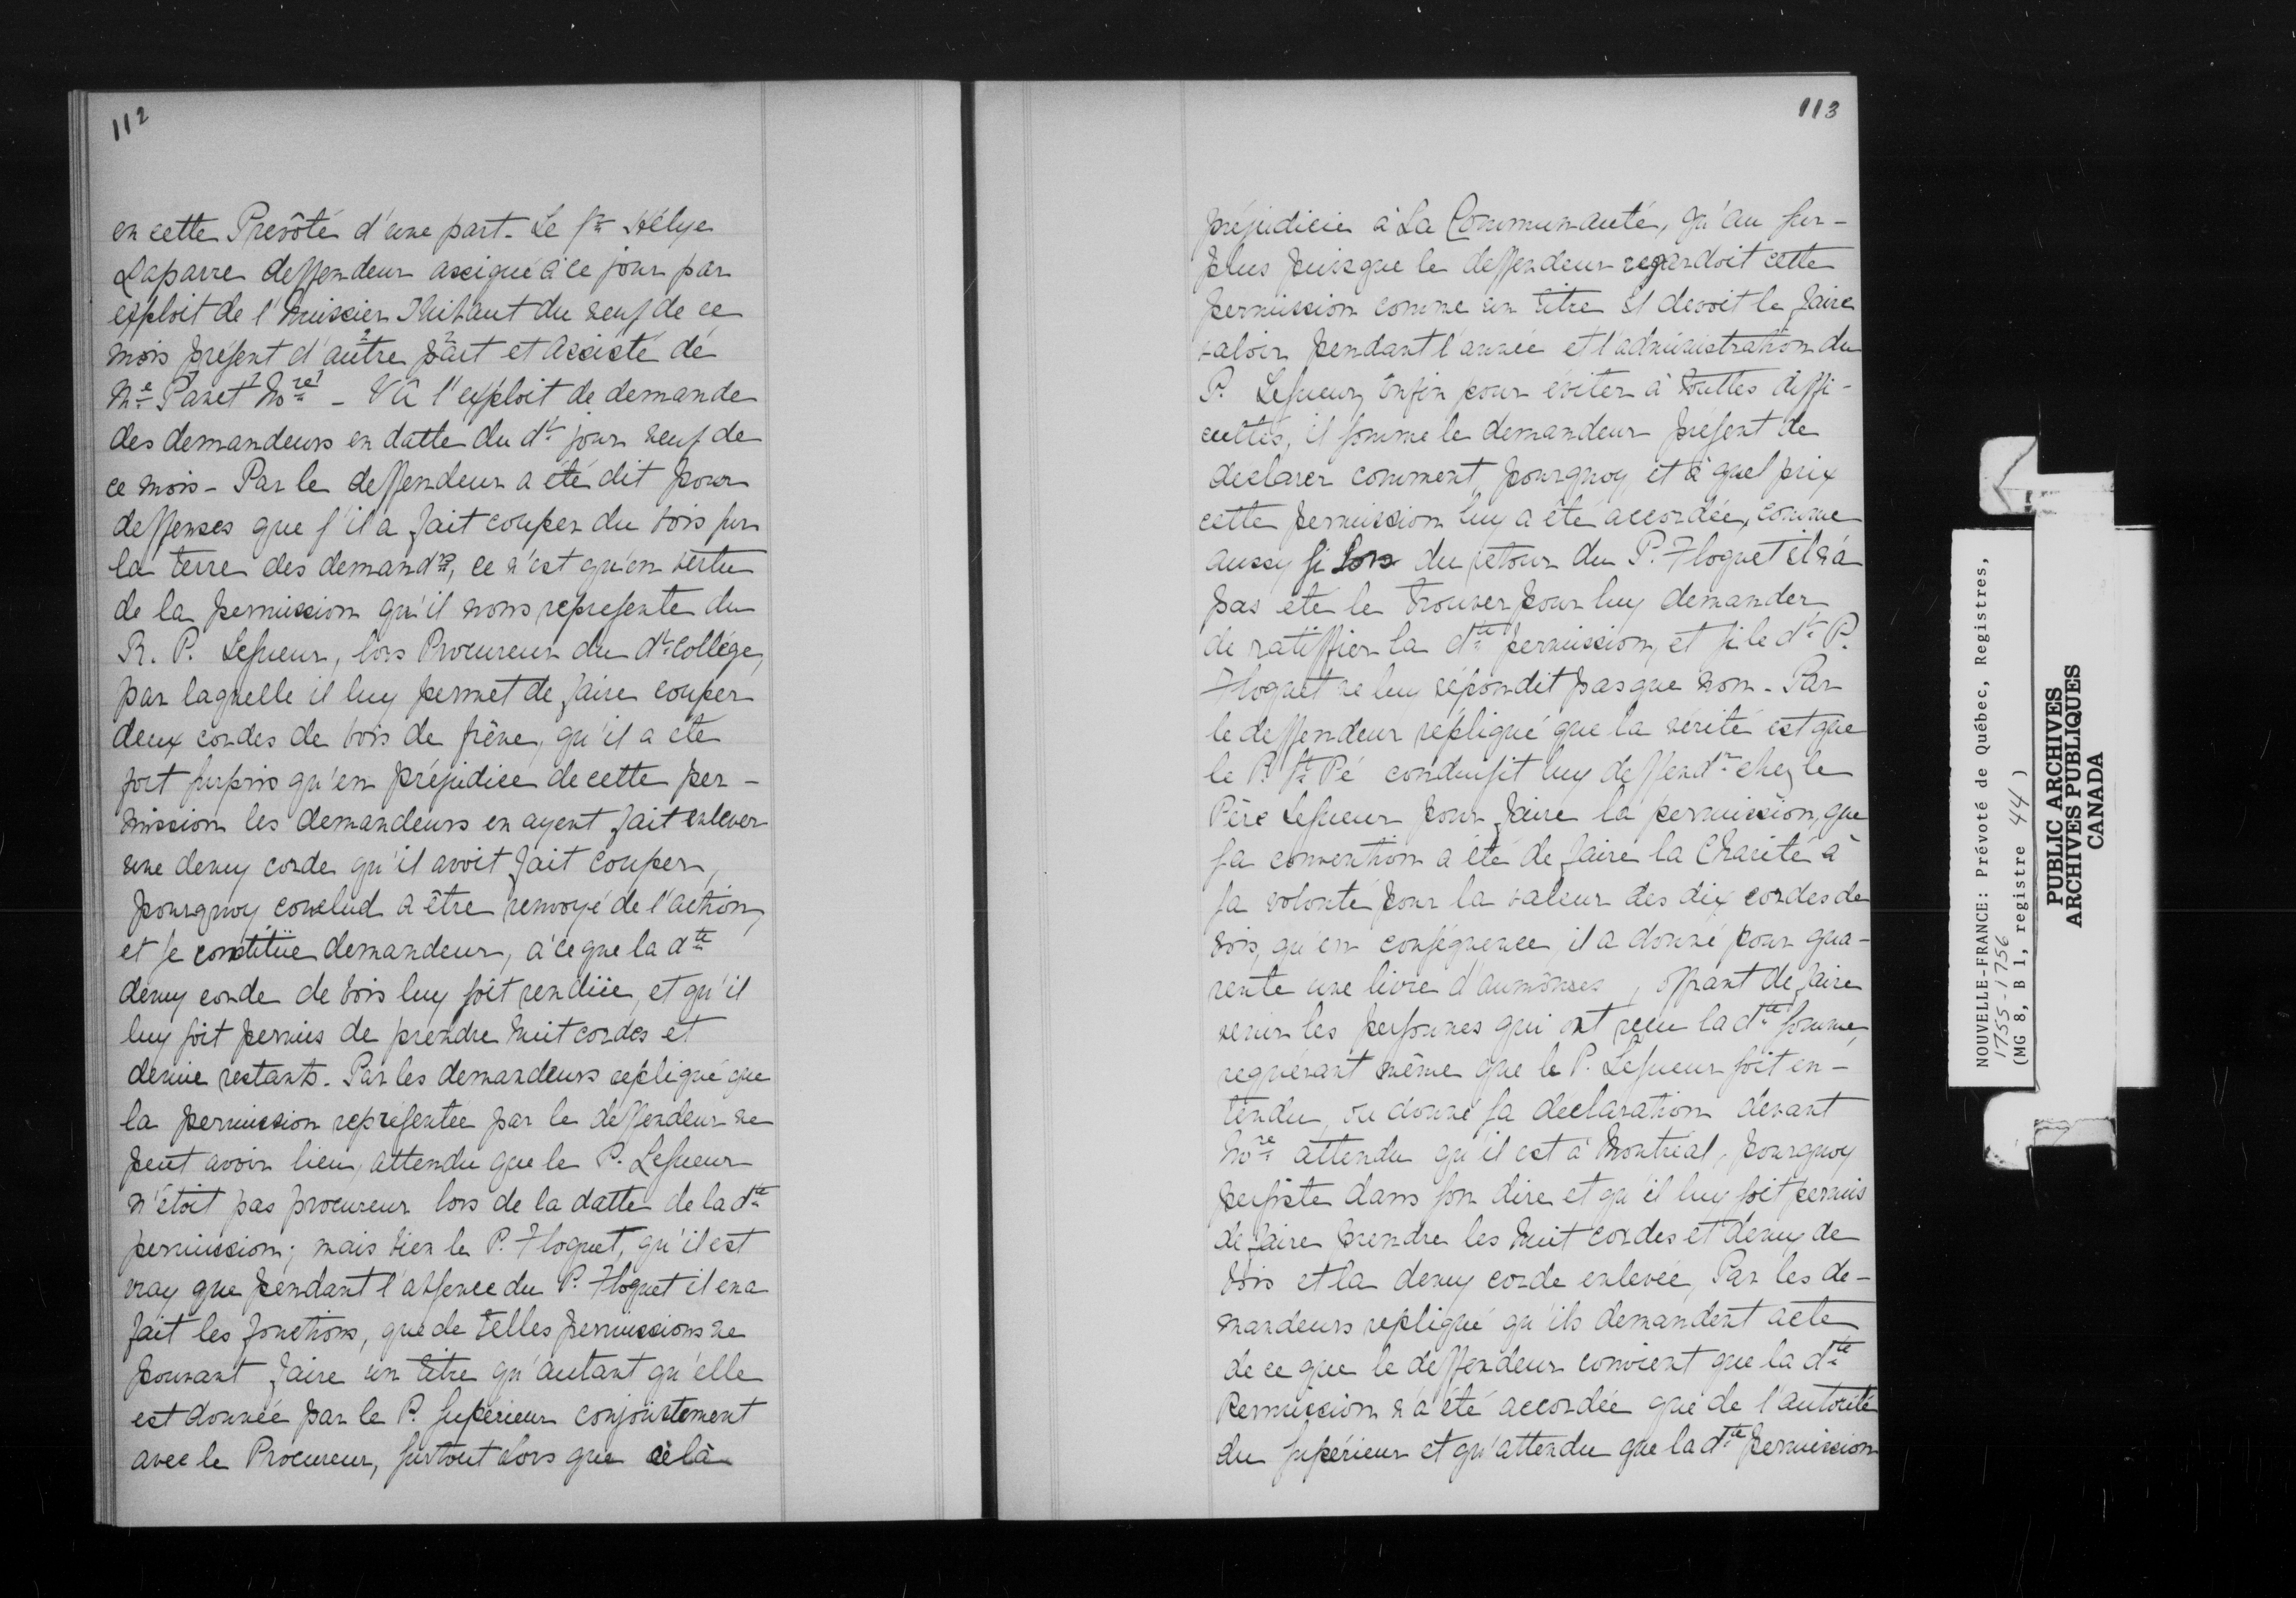 112
en cette Prevôté d'une part. Le Sr Hélye
Laparre deffendeur assigné à ce jour par
exploit de l'huissier Thibaut du neuf de ce
mois présent d'autre part et assisté de
Me Panet Nore - Vû l'exploit de demande
des demandeurs en datte du dt jour neuf de
ce mois - Par le deffendeur a été dit pour
deffenses que s'il a fait couper du bois sur
la terre des demandrs, ce n'est qu'en vertu
de la permission qu'il nous represente du
R. P. Lesueur, lors Procureur du dt Collége,
par laquelle il luy permet de faire couper
deux cordes de bois de frêne, qu'il a été
fort surpris qu'en préjudice de cette per-
mission les demandeurs en ayent fait enlever
une demy corde qu'il avoit fait couper,
pourquoy conclud a être renvoyé de l'action,
et se constitüe demandeur, à ce que la dte
demy corde de bois luy soit rendüe, et qu'il
luy soit permis de prendre huit cordes et
demie restants. Par les demandeurs repliqué que
la permission représentée par le deffendeur ne
peut avoir lieu, attendu que le P. Lesueur
n'étoit pas procureur lors de la datte de la dte
permission; mais bien le P. Floquet, qu'il est
vray que pendant l'absence du P. Floquet il en a
fait les fonctions, que de telles permissions ne
pouvant faire un titre qu'autant qu'elle
est donnée par le P. Supérieur conjointement
avec le Procureur, surtout lors que cela
113
préjudicie à La Communauté, qu'au sur-
plus puisque le deffendeur regardoit cette
permission comme un titre il devoit le faire
valoir pendant l'année et l'administration du
P. Lesueur, Enfin pour éviter à touttes diffi-
cultés, il somme le demandeur présent de
declarer comment, pourquoy et à quel prix
cette permission luy a été accordée, comme
aussy si lors du retour du P. Floquet il n'a
pas eté le trouver pour luy demander
de ratiffier la dte permission, et si le dt P.
Floquet ne luy répondit pas que non. Par
le deffendeur répliqué que la vérité est que
le P. St Pé conduisit luy deffendr chez le
Père Lesueur pour faire la permission, que
sa convention a été de faire la Charité à
sa volonté pour la valeur des dix cordes de
bois, qu'en conséquence, il a donné pour qua-
rente une livre d'aumônses, offrant de faire
venir les personnes qui ont reçu la dte somme,
requérant même que le P. Lesueur soit en-
tendu, ou donné sa declaration devant
Nore attendu qu'il est à Montréal, pourquoy
persiste dans son dire et qu'il luy soit permis
de faire prendre les huit cordes et demy de
bois et la demy corde enlevée, Par les de-
mandeurs repliqué qu'ils demandent acte
de ce que le deffendeur convient que la dte
Permission n'a été accordée que de l'autorité
du Supérieur et qu'attendu que la dte permission
NOUVELLE-FRANCE: Prévoté de Québec, Registres,
1755-1756
(MG 8, B 1, registre 44)
PUBLIC ARCHIVES
ARCHIVES PUBLIQUES
CANADA